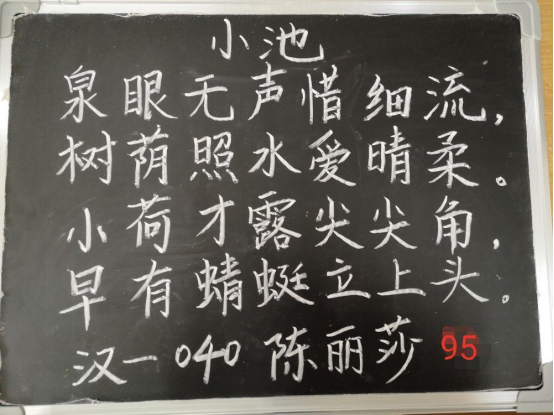 小池
泉眼无声惜细流,
树荫照水爱晴柔。
小荷才露尖尖角,
早有蜻蜓立上头。
汉一040 陈丽莎 95